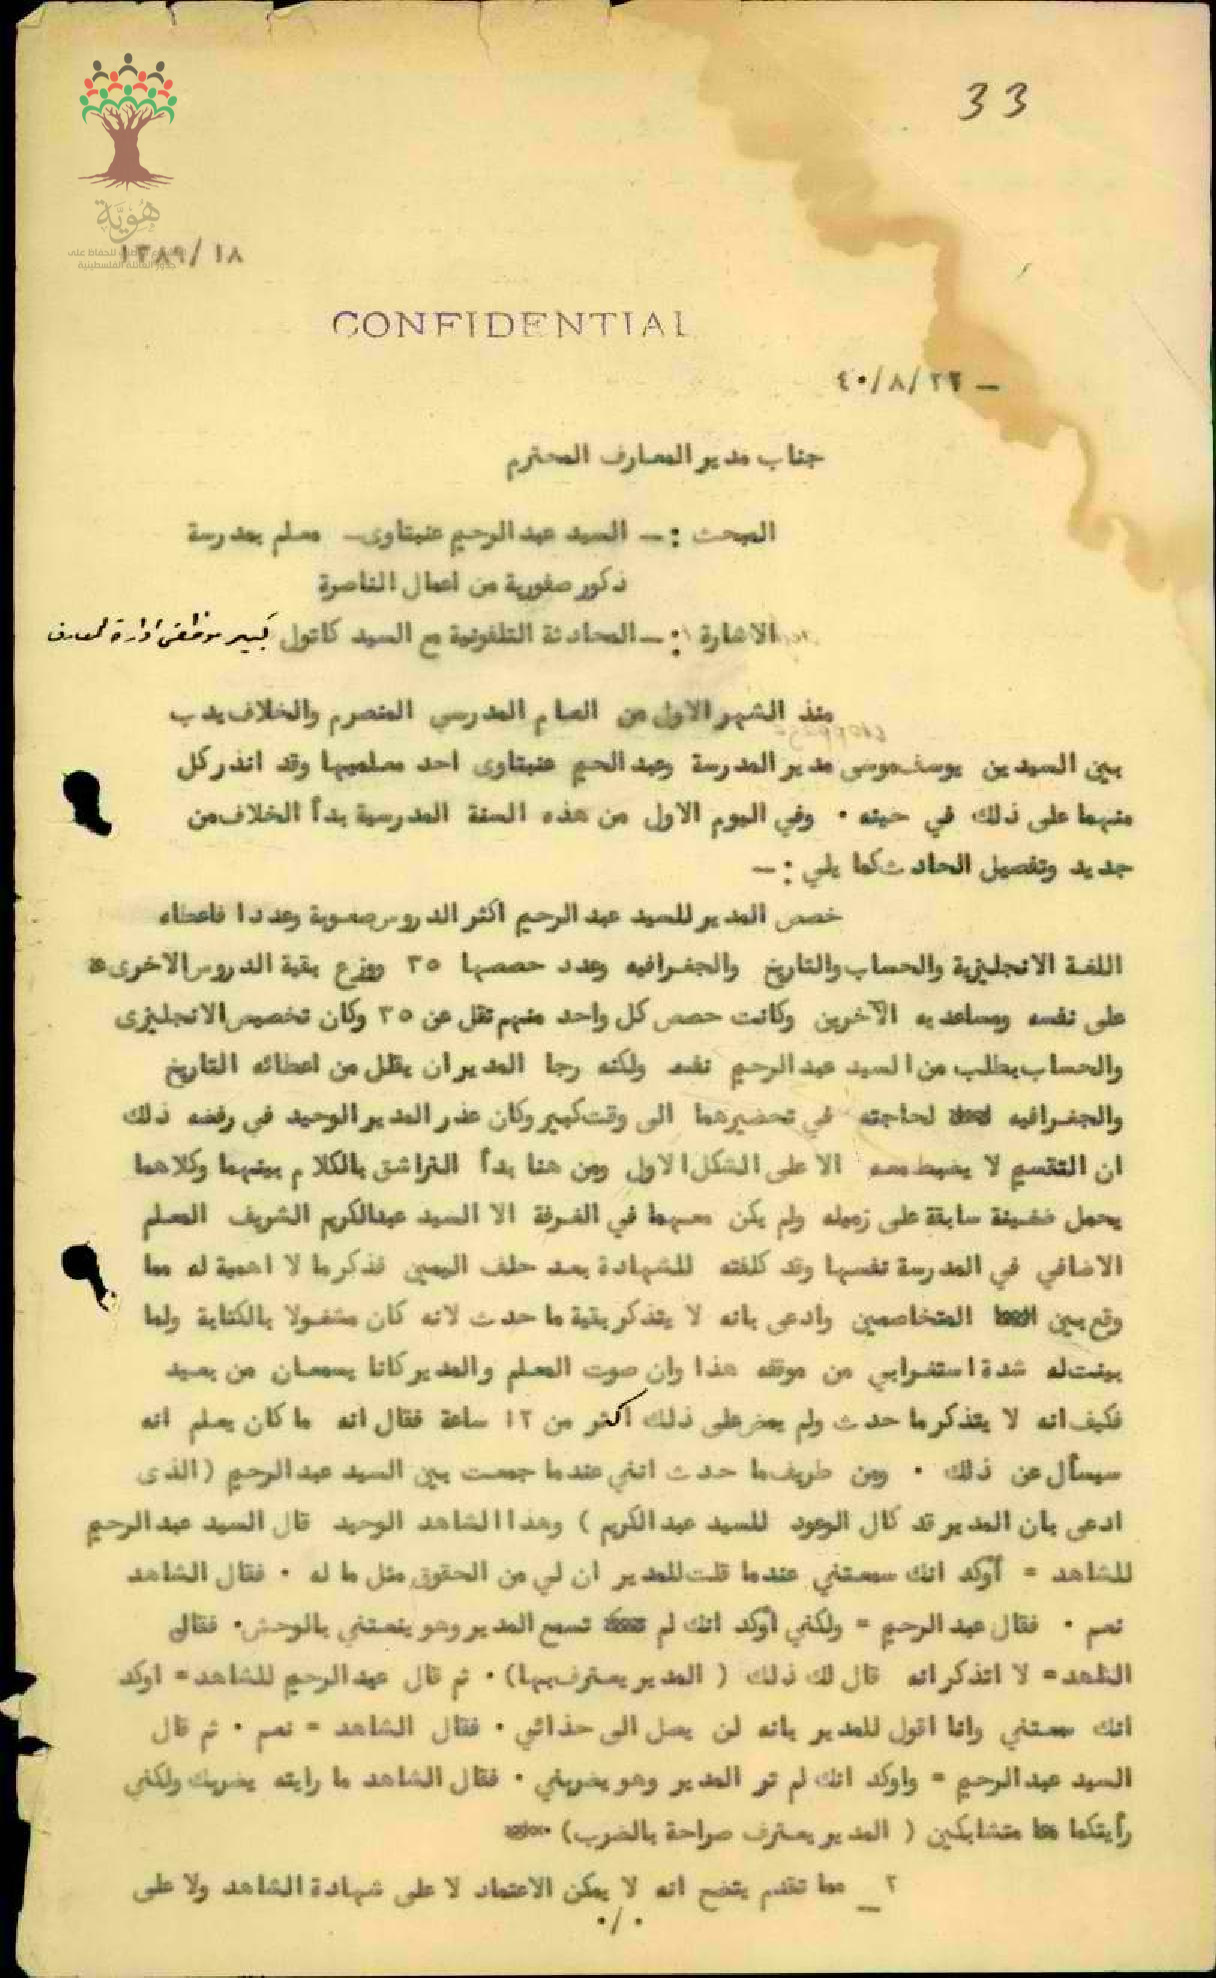 33
هُوِيَّة
١٣٨٩/١٨
CONFIDENTIAL
٤٠/٨/٢٢ –
جناب مدير المعارف المحترم
المبحث :– السيد عبد الرحيم عنبتاوى– معلم بمدرسة
ذكور صفورية من اعمال الناصرة
الاشارة :– المحادثة التلفونية مع السيد كاتول كبير موظفي ادارة المعارف
منذ الشهر الاول من العام المدرسي المنصرم والخلاف يدب
بين السيدين يوسف موسى مدير المدرسة وعبد الحيم عنبتاوى احد معلميها وقد انذر كل
منهما على ذلك في حينه ٠ وفي اليوم الاول من هذه السنة المدرسية بدأ الخلاف من
جديد وتفصيل الحادث كما يلي :–
خصص المدير للسيد عبد الرحيم اكثر الدروس صعوبة وعددا فاعطاه
اللغة الانجليزية والحساب والتاريخ والجغرافيه وعدد حصصها ٣٥ ووزع بقية الدروس الاخرى
على نفسه ومساعديه الآخرين وكانت حصص كل واحد منهم تقل عن ٣٥ وكان تخصيص الانجليزى
والحساب بطلب من السيد عبد الرحيم نفسه ولكنه رجا المدير ان يقلل من اعطائه التاريخ
والجغرافيه لحاجته في تحضيرهما الى وقت كبير وكان عذر المدير الوحيد في رفضه ذلك
ان التقسيم لا يضبط معه الا على الشكل الاول ومن هنا بدأ التراشق بالكلام بينهما وكلاهما
يحمل ضغينة سابقة على زميله ولم يكن معهما في الغرفة الا السيد عبدالكريم الشريف المعلم
الاضافي في المدرسة نفسها وقد كلفته للشهادة بعد حلف اليمين فذكر ما لا اهمية له مما
وقع بين المتخاصمين وادعى بانه لا يتذكر بقية ما حدث لانه كان مشغولا بالكتابة ولما
بينت له شدة استغرابي من موقفه هذا وان صوت المعلم والمدير كانا يسمعان من بعيد
فكيف انه لا يتذكر ما حدث ولم يمض على ذلك اكثر من ١٢ ساعة فقال انه ما كان يعلم انه
سيسأل عن ذلك ٠ ومن طريف ما حدث انني عندما جمعت بين السيد عبد الرحيم (الذى
ادعى بأن المدير قد كال الوعود للسيد عبد الكريم) وهذا الشاهد الوحيد قال السيد عبد الرحيم
للشاهد = أؤكد انك سمعتني عندما قلت للمدير ان لي من الحقوق مثل ما له ٠ فقال الشاهد
نعم ٠ فقال عبد الرحيم = ولكني أؤكد انك لم تسمع المدير وهو ينعتني بالوحش٠ فقال
الشاهد= لا اتذكر انه قال لك ذلك ( المدير يعترف بها) ٠ ثم قال عبد الرحيم للشاهد= اوكد
انك سمعتني وانا اقول للمدير بانه لن يصل الى حذائي ٠ فقال الشاهد = نعم ٠ ثم قال
السيد عبد الرحيم = واوكد انك لم تر المدير وهو يضربني ٠ فقال الشاهد ما رايته يضربك ولكني
رأيتكما متشابكين ( المدير يعترف صراحة بالضرب) ٠
٢_ مما تقدم يتضح انه لا يمكن الاعتماد لا على شهادة الشاهد ولا على
٠/٠